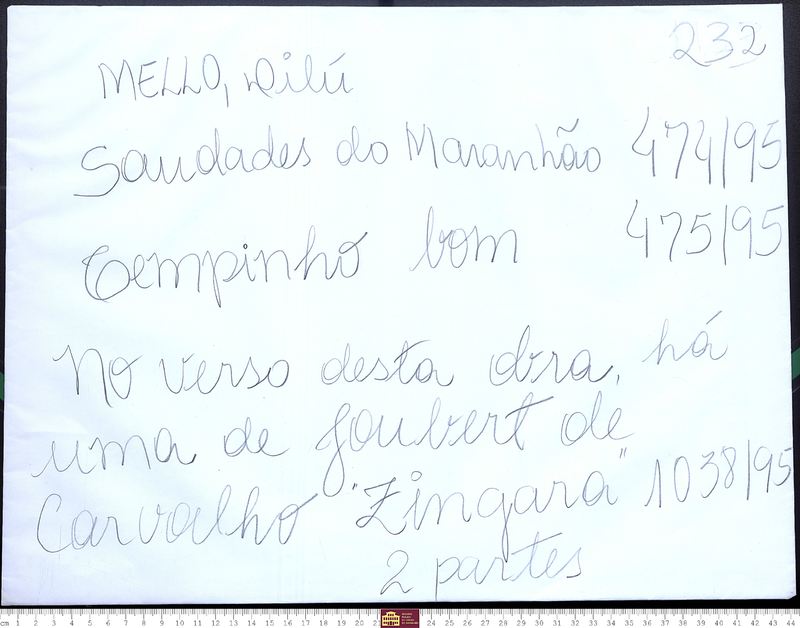 232
MELLO, Dilú
Saudades do Maranhão 474/95
Tempinho bom 475/95
No verso desta obra, há
uma de Joubert de
Carvalho "Zingara" 1038/95
2 partes
cm 1 2 3 4 5 6 7 8 9 10 11 12 13 14 15 16 17 18 19 20 21 24 25 26 27 28 29 30 31 32 33 34 35 36 37 38 39 40 41 42 43 44